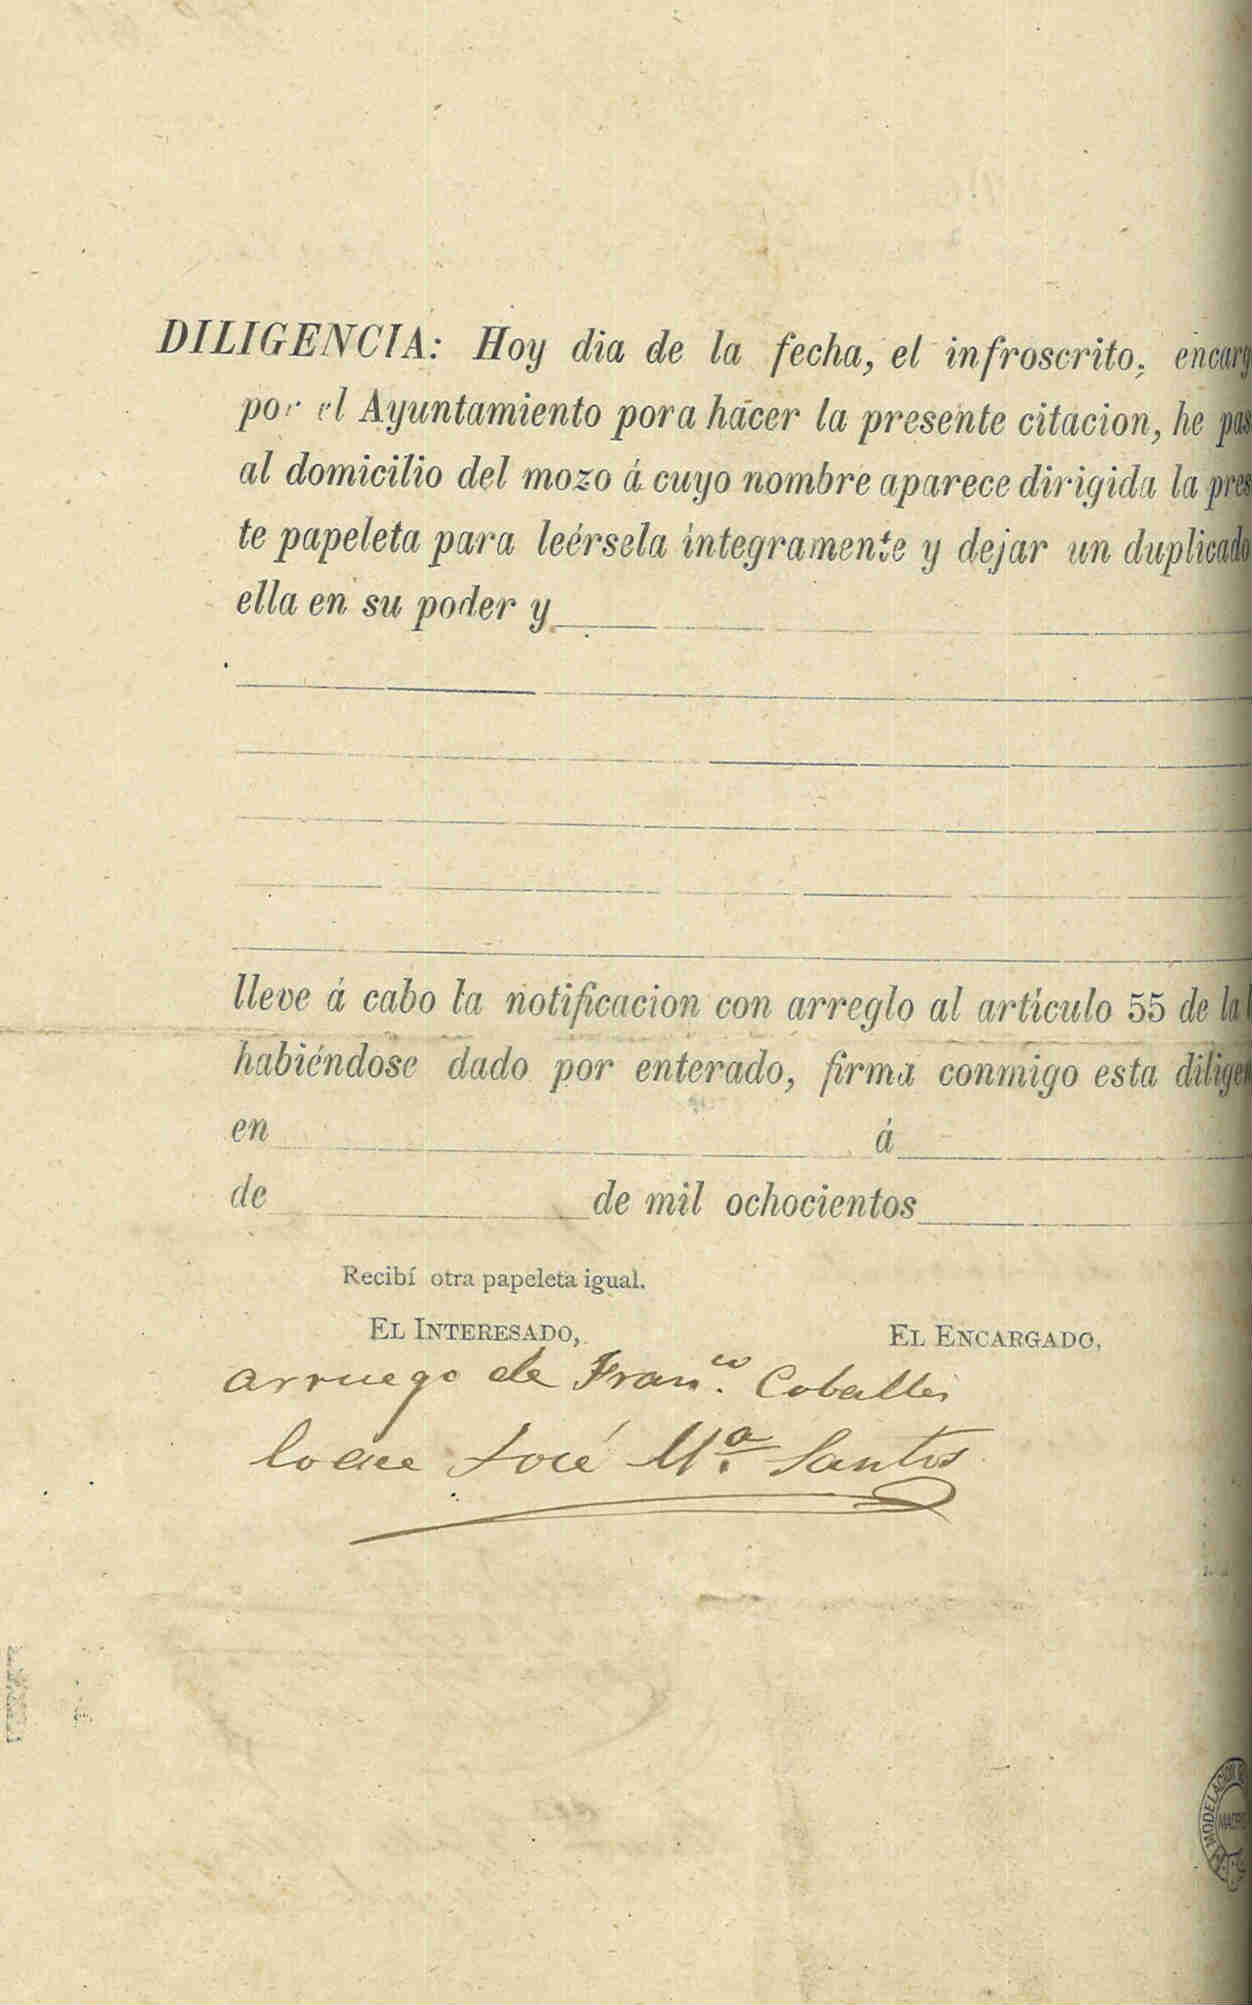 DILIGENCIA: Hoy dia de la fecha, el infroscrito, encarg
por el Ayuntamiento pora hacer la presente citacion, he pas
al domicilio del mozo á cuyo nombre aparece dirigida la pres
te papeleta para leérsela íntegramente y dejar un duplicado
ella en su poder y
lleve á cabo la notificacion con arreglo al artículo 55 de la l
habiéndose dado por enterado, firma conmigo esta diligen
en á
de de mil ochocientos
Recibí otra papeleta igual.
EL INTERESADO, EL ENCARGADO,
arruego de Fran.co Coballes
lo ace José Mª. Santos
MODELACION
MADRID